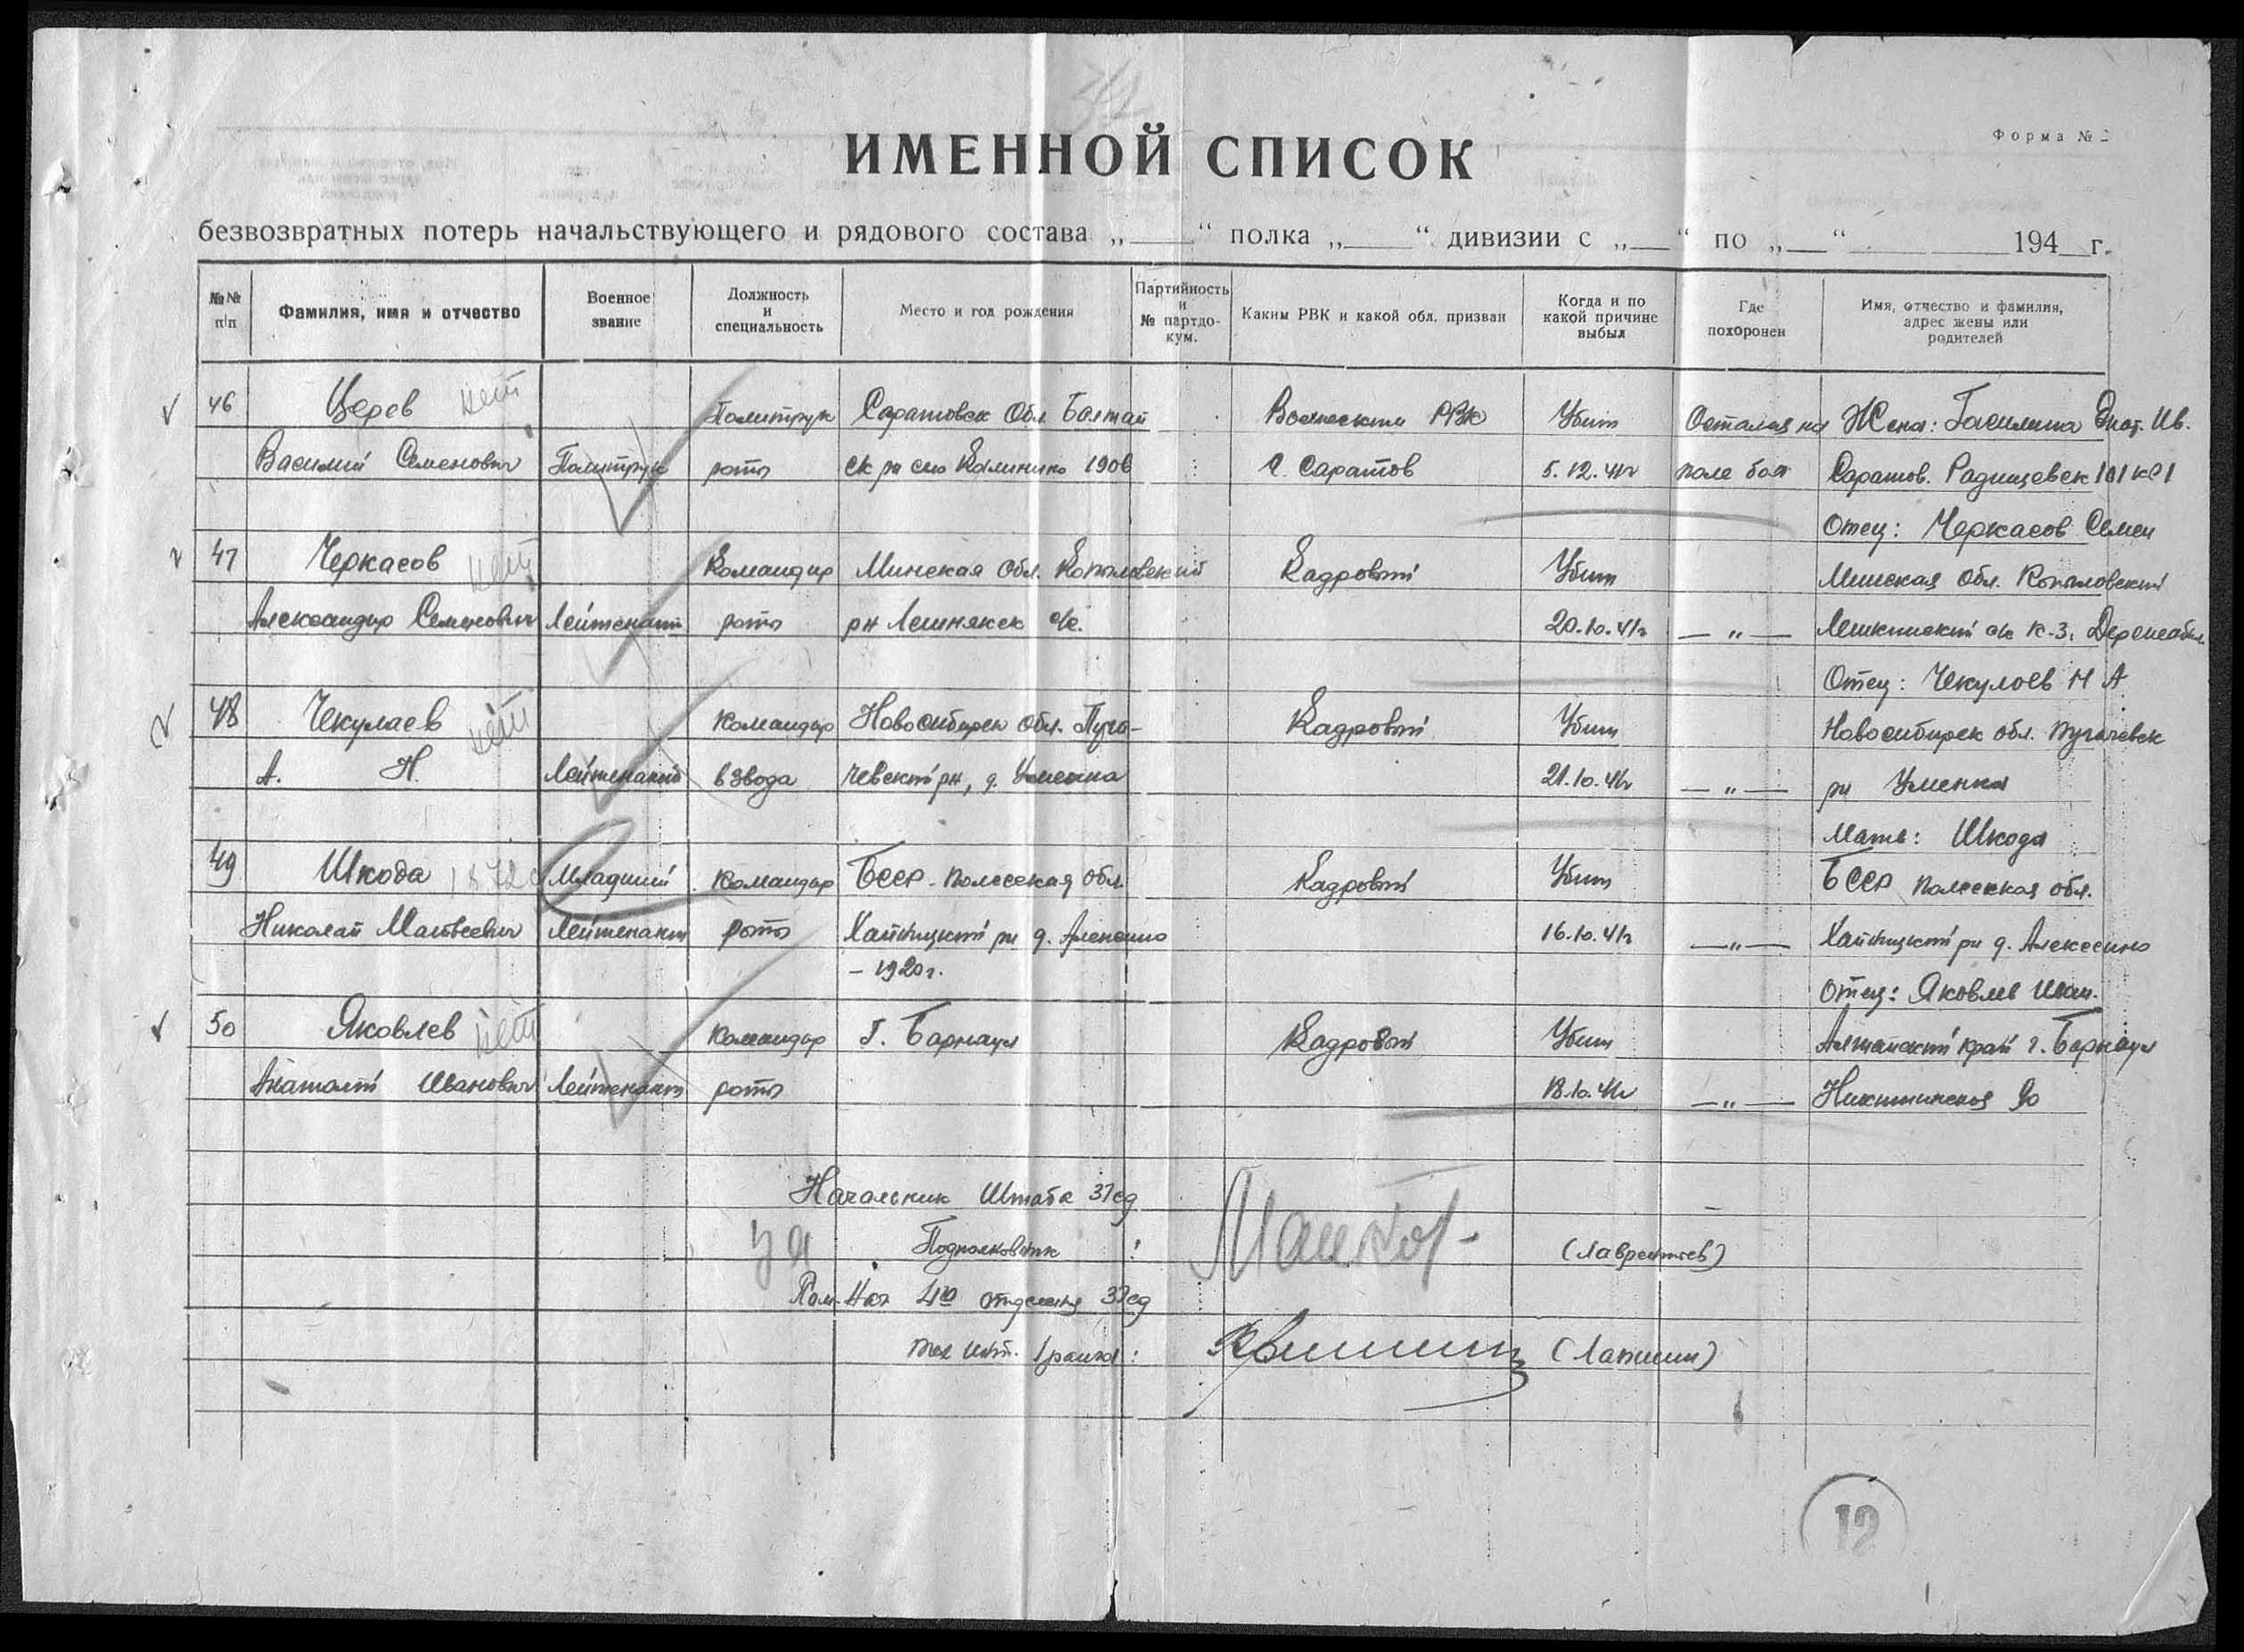 Форма №
ИМЕННОЙ СПИСОК
безвозвратных потерь начальствующего и рядового состава „____“ полка „____“ дивизии с „__“ по „__“ ________ 194__г.
№№ п/п
Фамилия, имя и отчество
Военное звание
Должность и специальность
Место и год рождения
Партийность и № партдокум.
Каким РВК и какой обл. призван
Когда и по какой причине выбыл
Где похоронен
Имя, отчество и фамилия, адрес жены или родителей
46 Церев нет Политрук Саратовск Обл. Балтай Волжским РВК Убит Остался на Жена: Ив.
Василий Семенович Политрук роты ск рн село Калинино 1906 г. Саратов 5.12.41г поле боя Саратов. Радищевск
Отец: Черкасов Семен
47 Черкасов нет Командир Минская Обл. Копыловский Кадровый Убит Минская Обл. Копыловский
Александр Семенович Лейтенант роты рн с/с. 20.10.41г — „ — с/с к-з.
Отец: Чекулаев Н А
48 Чекулаев нет Командир Новосибирск обл. Пуга- Кадровый Убит Новосибирск обл. Пугачевск
А. Н. Лейтенант взвода чевский рн, д. Уменка 21.10.41г — „ — рн Уменка
Мать: Шкода
49 Шкода Младший Командир БССР - Полесская обл. Кадровый Убит БССР Полесская обл.
Николай Матвеевич Лейтенант роты рн д. 16.10.41г — „ — рн д.
- 1920г.
Отец: Яковлев Иван.
50 Яковлев нет Командир Г. Барнаул Кадровый Убит Алтайский край г. Барнаул
Анатолий Иванович Лейтенант роты 18.10.41г — „ — Никитинская 90
Начальник Штаба 37сд
За Подполковник : (Лаврентьев)
Пом. Нач 4го отделения 37сд
тех инт. 1 ранга : (Лапшин)
12